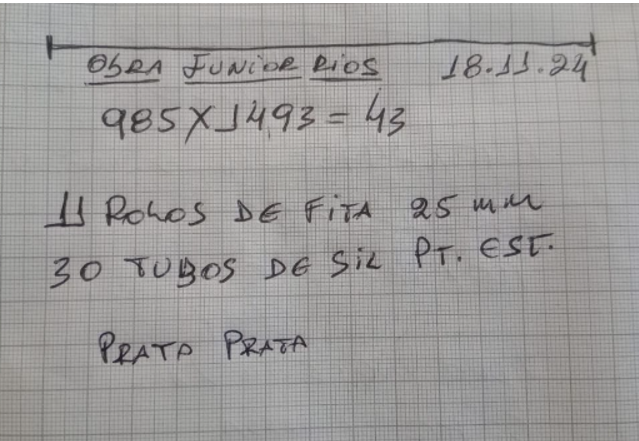 OBRA JUNIOR RIOS 18.11.24
985X1493=43
11 ROLOS DE FITA 25 mm
30 TUBOS DE SIL PT. EST.
PRATA PRATA